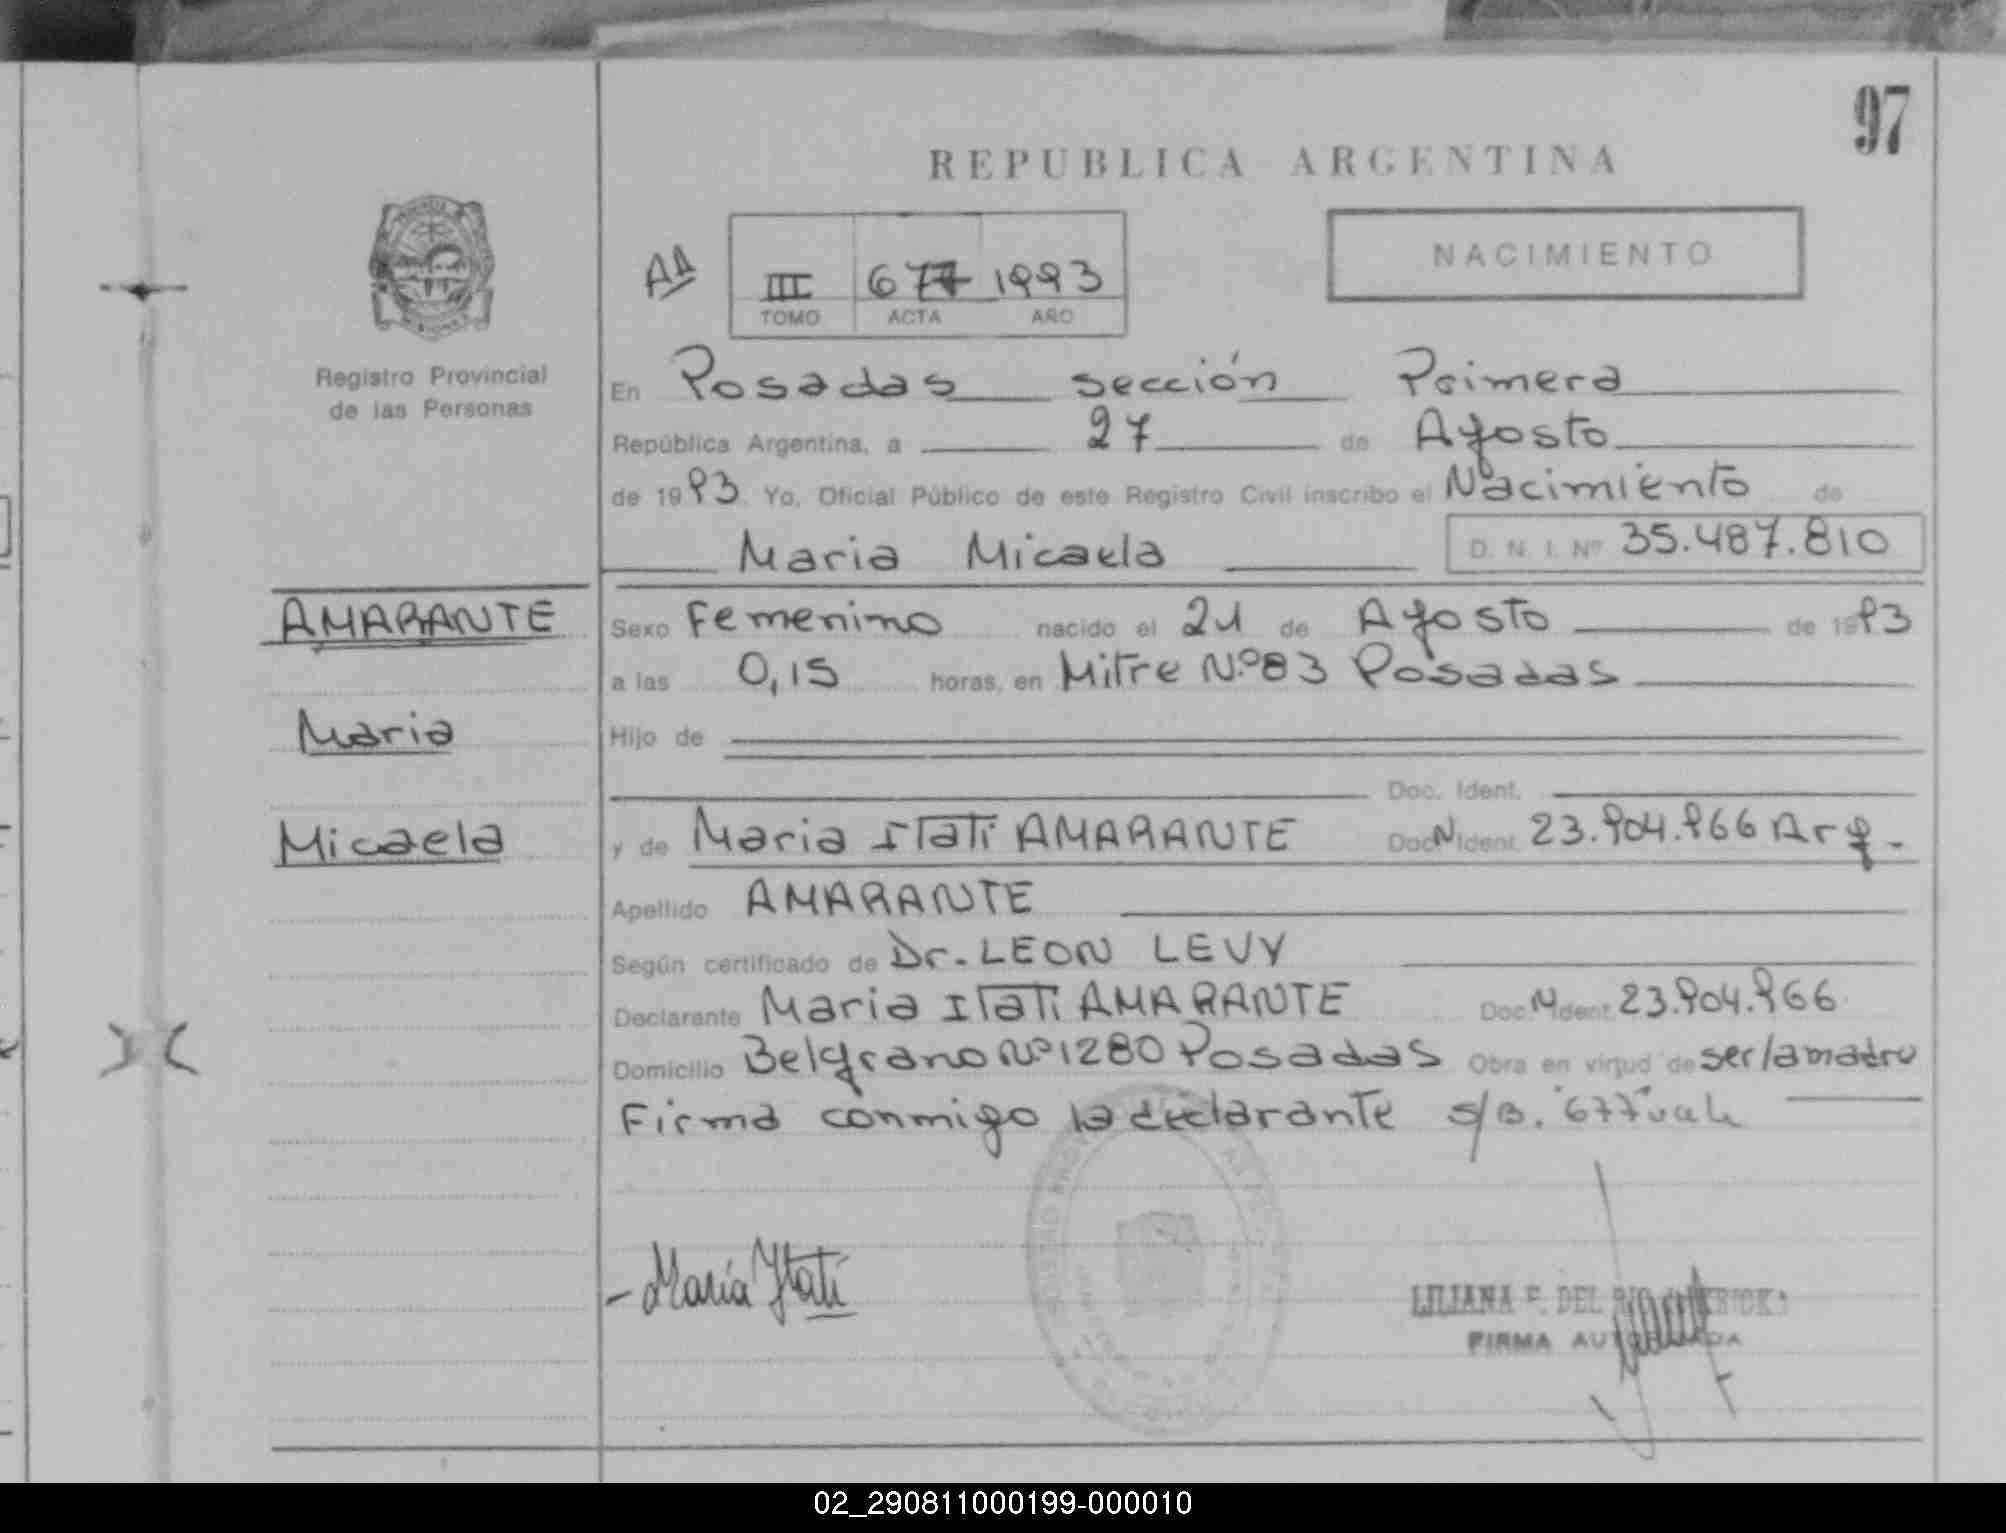 97
REPUBLICA ARGENTINA
NACIMIENTO
AA
III 677 1993
TOMO ACTA AÑO
Registro Provincial
de las Personas
En Posadas sección Primera
República Argentina, a 27 de Agosto
de 1993 Yo, Oficial Público de este Registro Civil inscribo el Nacimiento de
Maria Micaela D. N. I. Nº 35.487.810
AMARANTE
Maria
Micaela
Sexo Femenino nacido el 21 de Agosto de 1993
a las 0,15 horas, en Mitre Nº83 Posadas
Hijo de
Doc. Ident.
y de Maria Itati AMARANTE Doc.N Ident. 23.904.966 Arg.
Apellido AMARANTE
Según certificado de Dr. LEON LEVY
Declarante Maria Itati AMARANTE Doc.N Ident. 23.904.966
Domicilio Belgrano Nº1280 Posadas Obra en virtud de ser la madre
Firma conmigo la declarante s/B. "677" vale
- María Itatí
LILIANA F. DEL
FIRMA AUTORIZADA
02_290811000199-000010